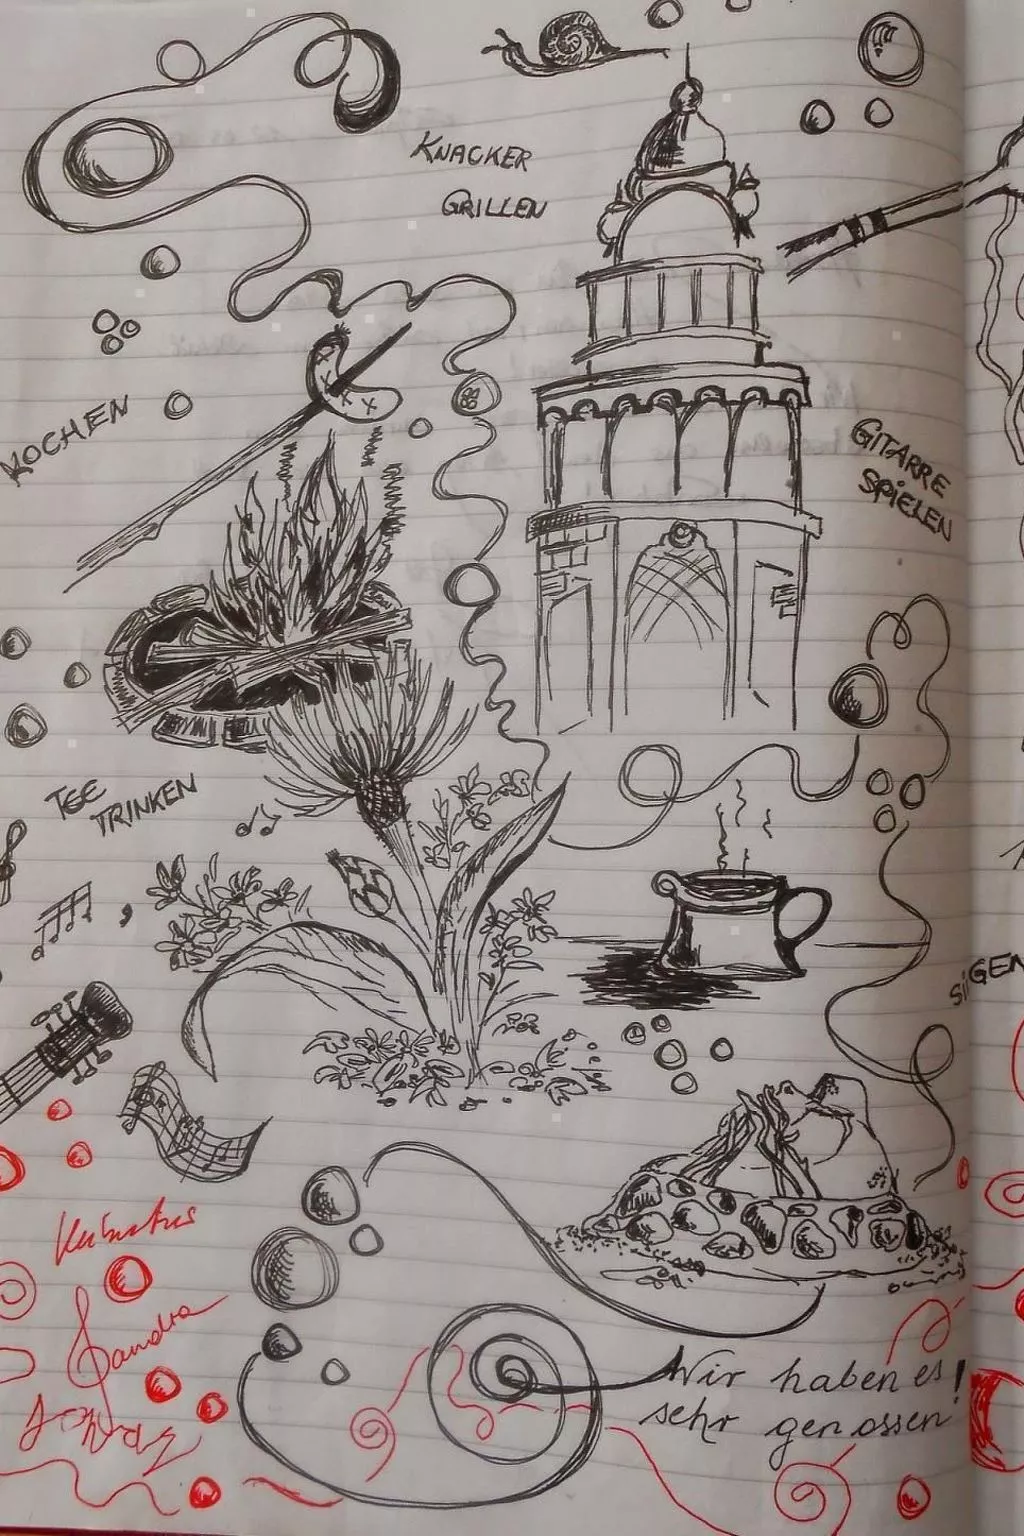 KNACKER
GRILLEN
KOCHEN
GITARRE
SPIELEN
TEE
TRINKEN
Sandra
Wir haben es
sehr genossen!